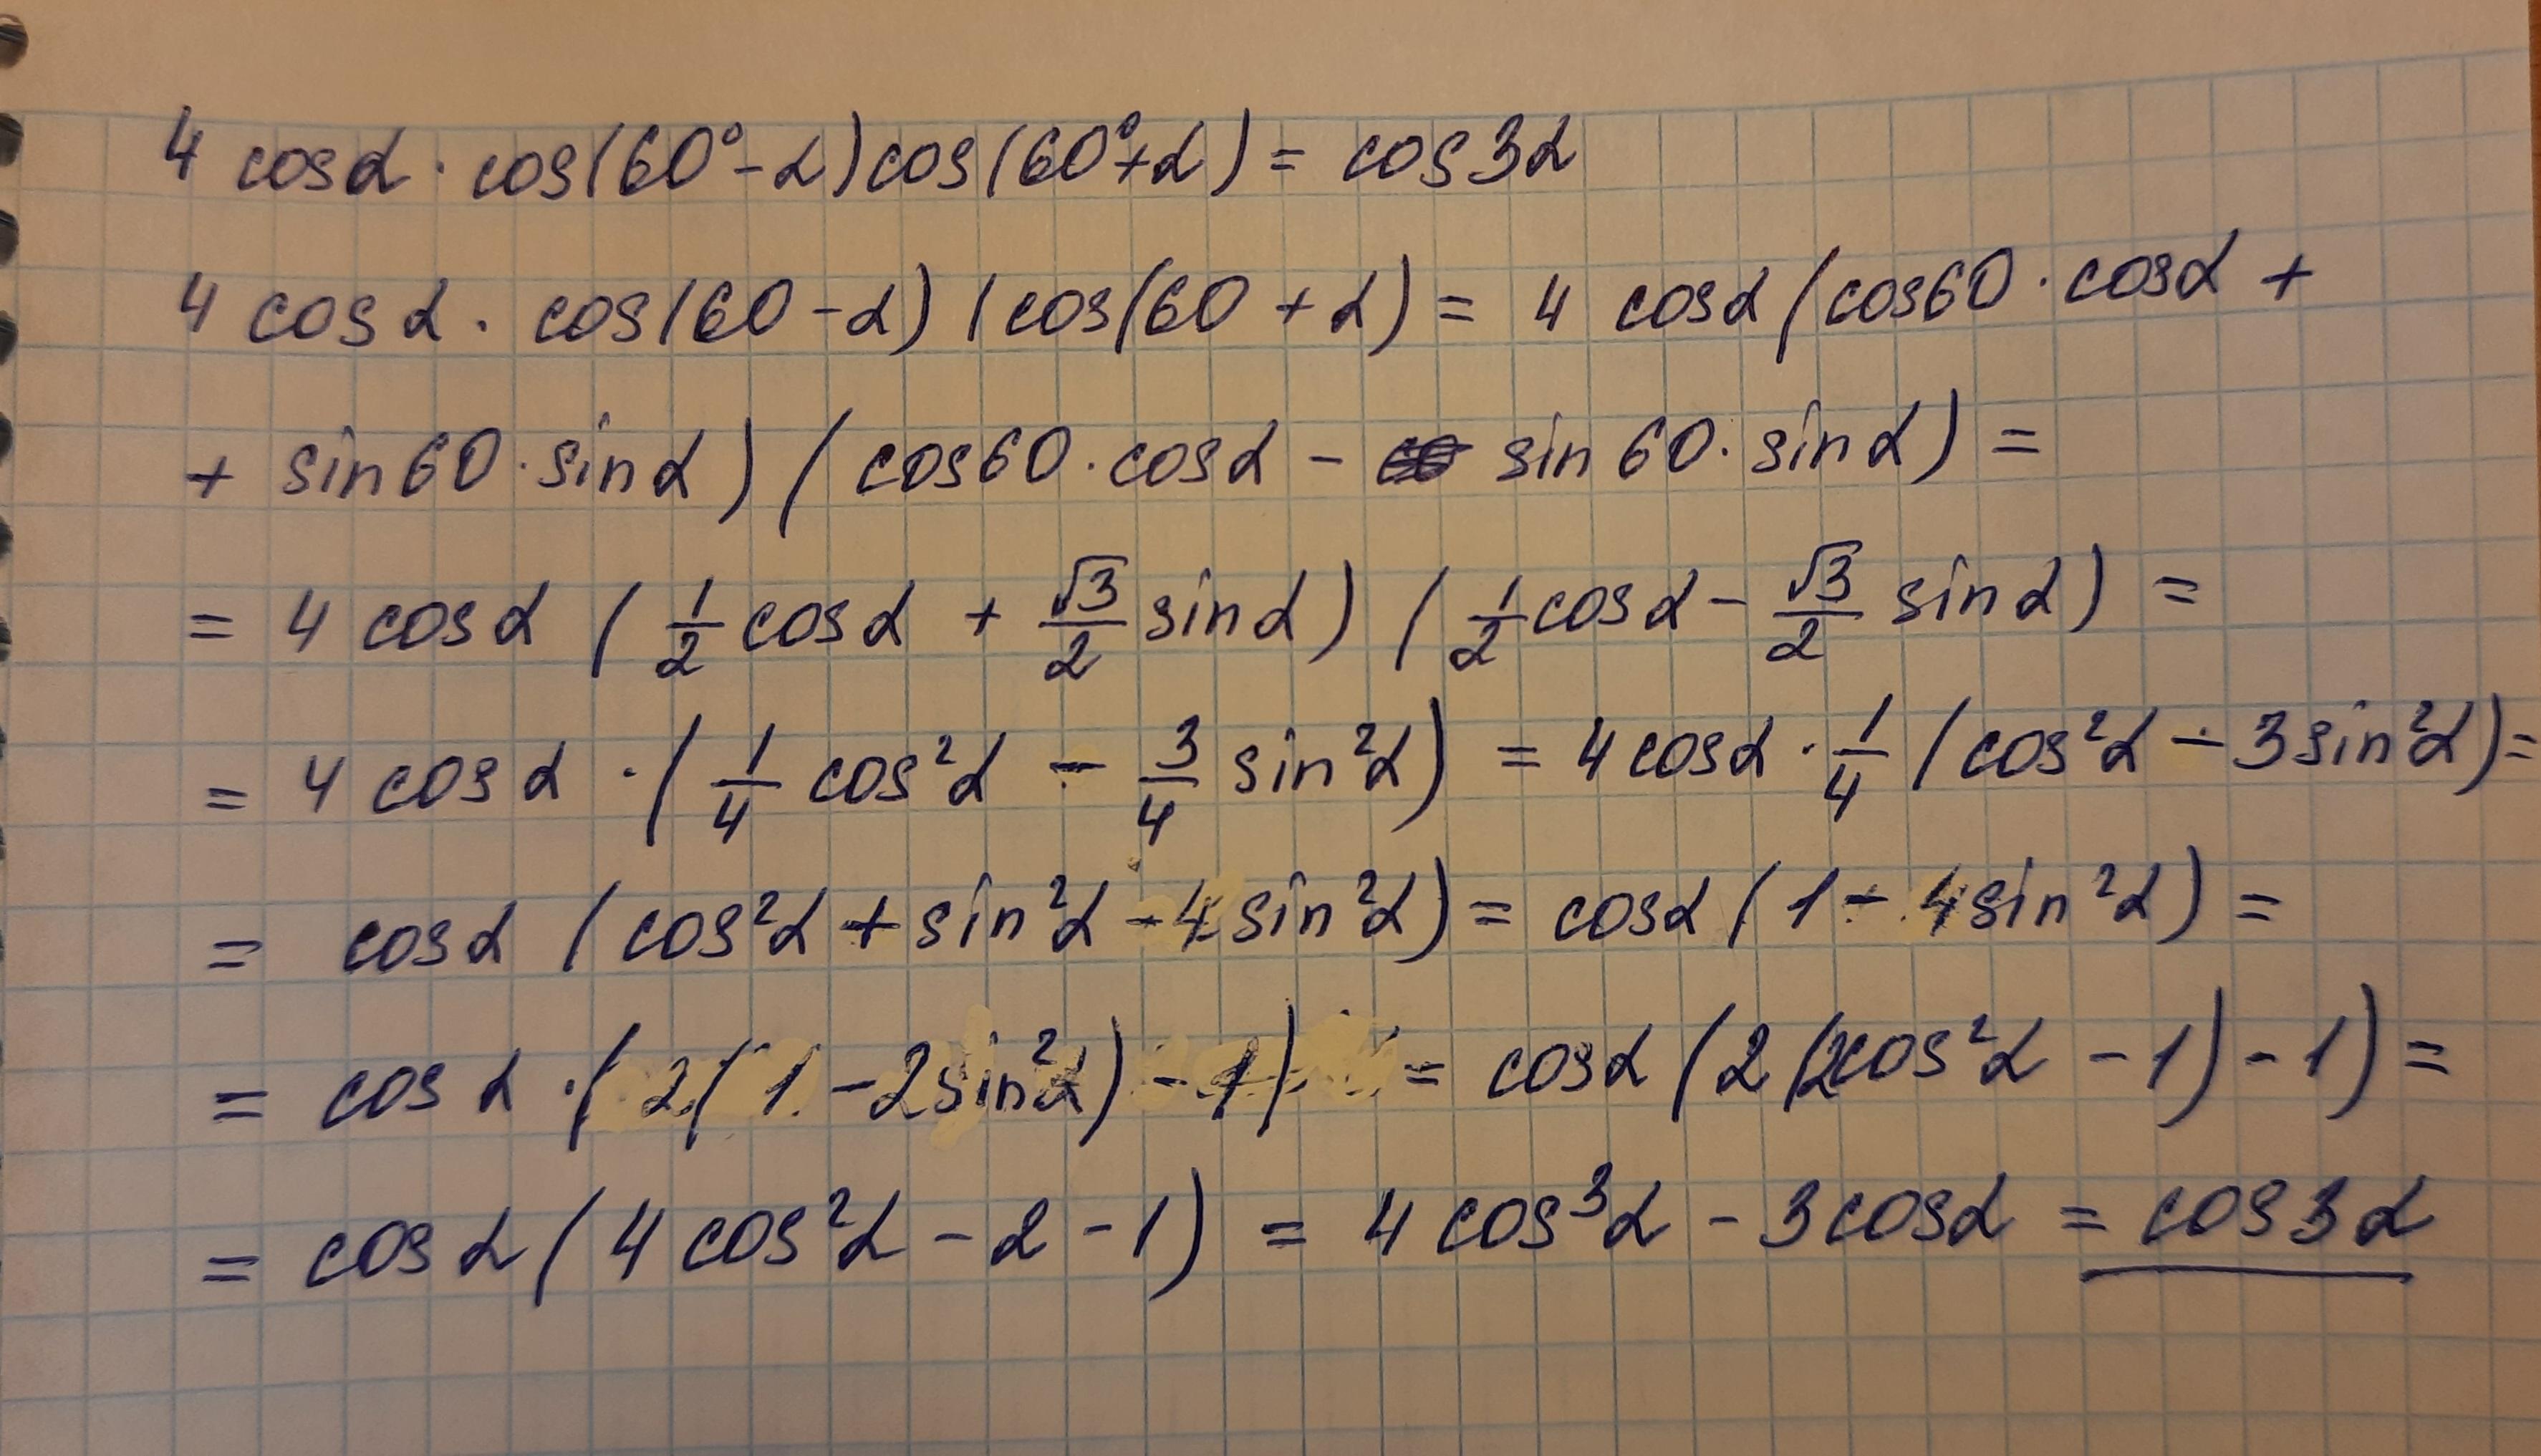 4 cosα · cos(60°-α)cos(60°+α) = cos3α
4 cosα · cos(60-α) (cos(60+α) = 4 cosα (cos60 · cosα +
+ sin60 · sinα) (cos60 · cosα - sin60 · sinα) =
= 4 cosα (1/2 cosα + √3/2 sinα) (1/2 cosα - √3/2 sinα) =
= 4 cosα · (1/4 cos²α - 3/4 sin²α) = 4cosα · 1/4 (cos²α - 3sin²α) =
= cosα (cos²α + sin²α - 4sin²α) = cosα (1 - 4sin²α) =
= cosα · (2(1 - 2sin²α) - 1) = cosα (2(2cos²α - 1) - 1) =
= cosα (4cos²α - 2 - 1) = 4cos³α - 3cosα = cos3α